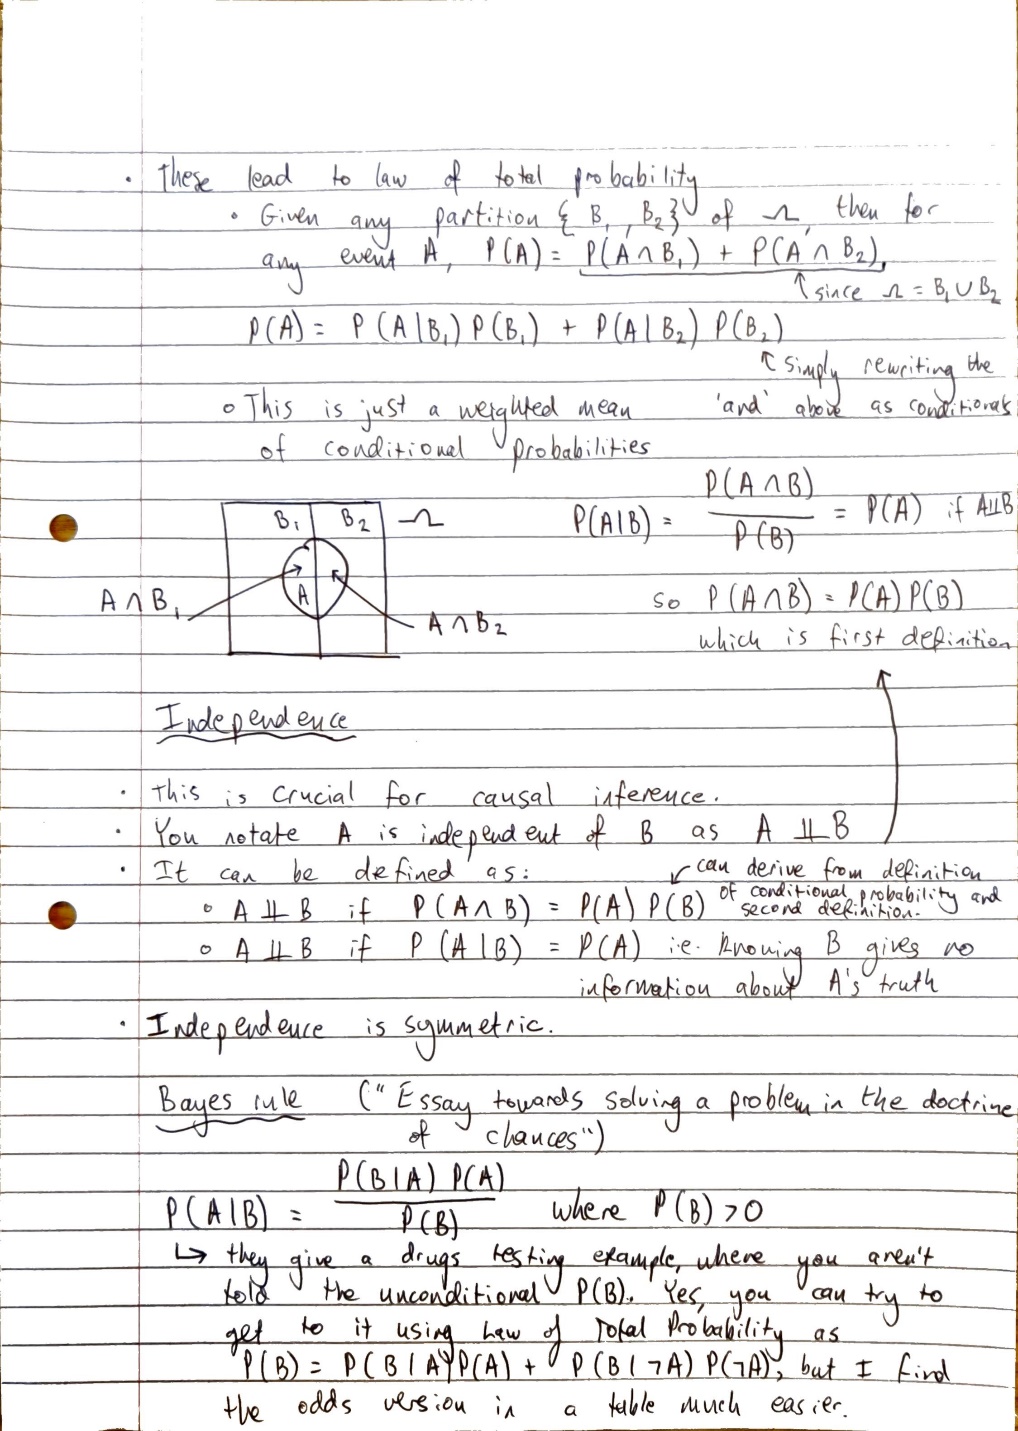 · These lead to law of total probability
∘ Given any partition { B₁, B₂} of Ω, then for
any event A, P(A) = P(A ∩ B₁) + P(A ∩ B₂),
↑ since Ω = B₁ ∪ B₂
P(A) = P(A|B₁) P(B₁) + P(A|B₂) P(B₂)
↑ simply rewriting the
'and' above as conditionals
∘ This is just a weighted mean
of conditional probabilities
P(A|B) = P(A ∩ B) / P(B) = P(A) if A⫫B
B₁ B₂ Ω
A
A ∩ B₁
A ∩ B₂
so P(A ∩ B) = P(A) P(B)
which is first definition
Independence
· This is crucial for causal inference.
· You notate A is independent of B as A ⫫ B
· It can be defined as:
∘ A ⫫ B if P(A ∩ B) = P(A) P(B)
↙ can derive from definition
of conditional probability and
second definition.
∘ A ⫫ B if P(A|B) = P(A) i.e. knowing B gives no
information about A's truth
· Independence is symmetric.
Bayes rule ("Essay towards solving a problem in the doctrine
of chances")
P(A|B) = P(B|A) P(A) / P(B) where P(B) > 0
↳ they give a drugs testing example, where you aren't
told the unconditional P(B). Yes, you can try to
get to it using Law of Total Probability as
P(B) = P(B|A) P(A) + P(B|¬A) P(¬A), but I find
the odds version in a table much easier.